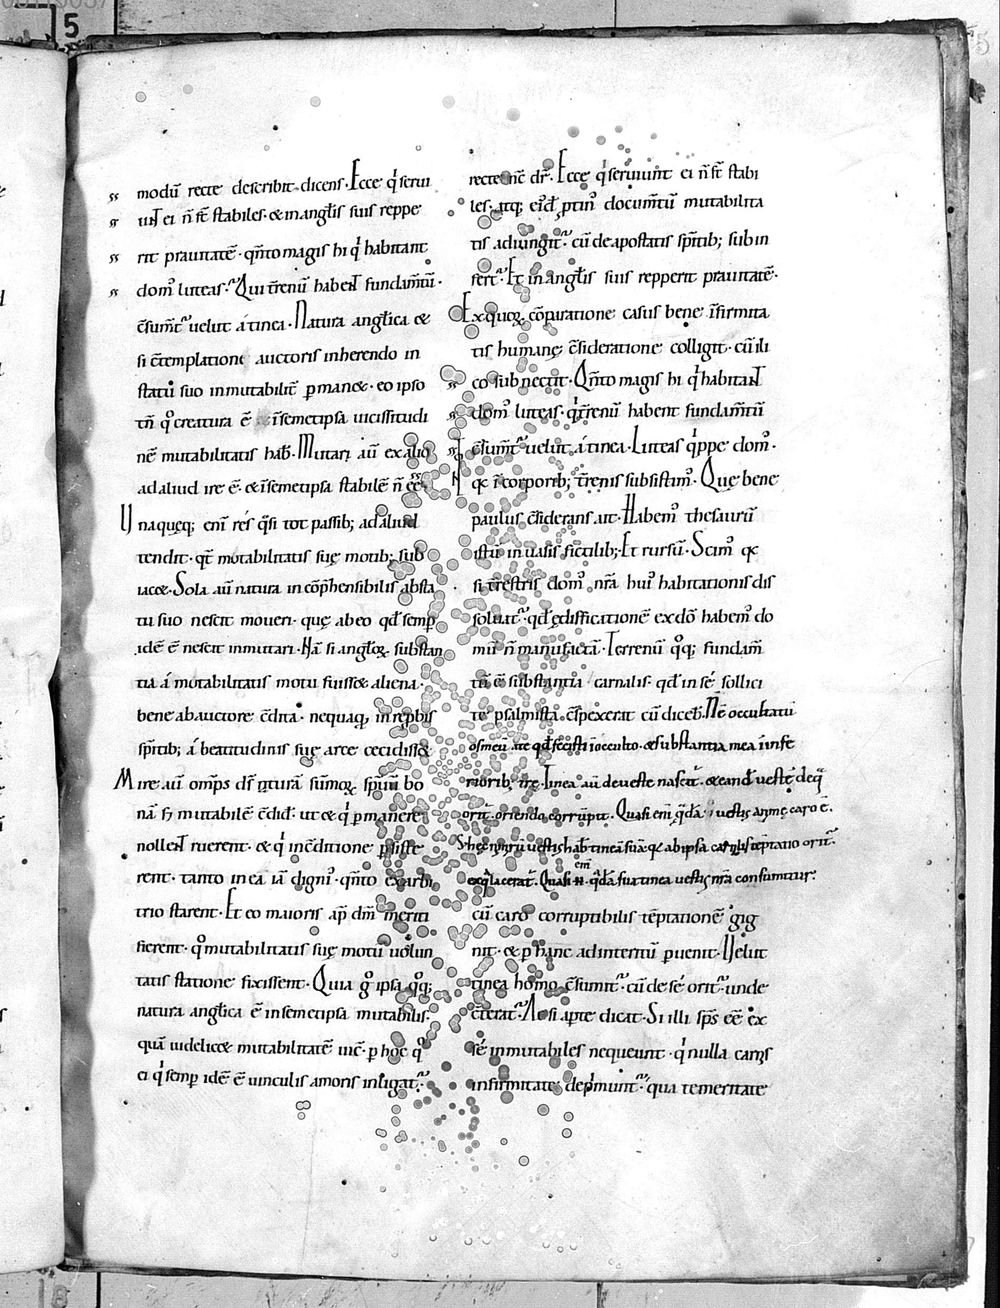 modū recte describit dicens. Ecce q̇ serui
unt ei n̄ st̄ stabiles. & in angl̄is suis reppe
rit prauitatē. qn̄to magis hi q̇ habitant
domꝰ luteas. Qui t̄renū habent fundam̄tū.
c̄sum̄t᷑ uelut á tinea. Natura angl̄ica &
si c̄templatione auctoris inherendo in
statu suo inmutabilit̄ ꝑmanet. eo ipso
tn̄ qº creatura ē in semetipsa uicissitudi
nē mutabilitatis hab&. Mutari aū ex alio
ad aliud ire ē. & in semetipsa stabilē n̄ eē.
Unaquęq; eni res q̇si tot passib; ad aliud
tendit. qt̄ motabilitatis suę motib; sub
iac&. Sola aū natura incōp̄hensibilis a statu
tu suo nescit moueri. quę ab eo qd̄ semꝑ
idē ē nescit inmutari. Nā si angl̄oꝝ substan
tia á motabilitatis motu fuiss& aliena.
bene ab auctore c̄dita. nequaq̄ in reꝓbis
sp̄ritib; á beatitudinis suę arce cecidiss&.
Mire aū omp̄s ds̄ naturā sum̄oꝝ sp̄uū bo
nā s; mutabilē c̄did̄. ut & q̇ ꝑmanere
nollent ruerent. & q̇ in c̄ditione ꝑsiste
rent. tanto in ea iā digniꝰ. qn̄to ex arbi
trio starent. Et eo maioris ap̄ dm̄ meriti
fierent. qº mutabilitatis suę motū uolun
tatis statione fixissent. Quia gº ipsa qºq;
natura angl̄ica ē in semetipsa mutabilis.
quā uidelic& mutabilitatē uic̄. ꝑ hoc qº
ei q̇ semꝑ idē ē uinculis amoris inligat᷑.
recte nc̄ dr̄. Ecce q̇ seruiunt ei n̄ st̄ stabi
les. atq; eid̄ ꝓtinꝰ documtū mutabilita
tis adiungit᷑. cū de apostatis sp̄ritib; subin
fert᷑. Et in angl̄is suis repperit prauitatē.
Ex quoꝝ cōparatione casus bene īfirmita
tis humanę c̄sideratione colligit. cū ili
co subnectit. Qn̄to magis hi q̇ habitant
domꝰ luteas. q̇ t̄renū habent fundam̄tū
c̄sum̄t᷑ uelut á tinea. Luteas q̇ppe domꝰ.
qa ī corporib; t̄renis subsistimꝰ. Quę bene
paulus c̄siderans ait. Habemꝰ thesaurū
istū in uasis fictilib; Et rursū. Scimꝰ qa
si t̄restris domꝰ nr̄a huiꝰ habitationis dis
soluat᷑. qd̄ ędifficationē ex dō habemꝰ do
mū n̄ manufactā. Terrenū qºq; fundam̄
tū ē substantia carnalis. qd̄ in sé sollici
te psalmista c̄spexerat cū diceb&. Nē occultatū
os meū a te qd̄ fecisti ī occulto. & substantia mea ī infe
riorib; t̄rę. Tinea aū de ueste nascit᷑. & eand̄ uestē de q̄
orit᷑. oriendo corrūpit. Quasi eni q̄dā uestis anime caro ē.
S; hęc nimirū uestis hab& tineā suā. qa ab ipsa carnalis tēptatio orit᷑.
ex q̄ lacerat᷑. Quasi eni q̄dā sua tinea uestis nr̄a consumitur.
cū caro corruptibilis tēptationē gig
nit. & ꝑ hanc ad interitū ꝑuenit. Uelut
tinea homo c̄sumit᷑. cū de sé orit᷑. unde
c̄terat᷑. Ac si apte dicat. Si illi sp̄s eē ex
sé inmutabiles nequeunt. q̇ nulla carnis
infirmitate dep̄munt᷑. qua temeritate